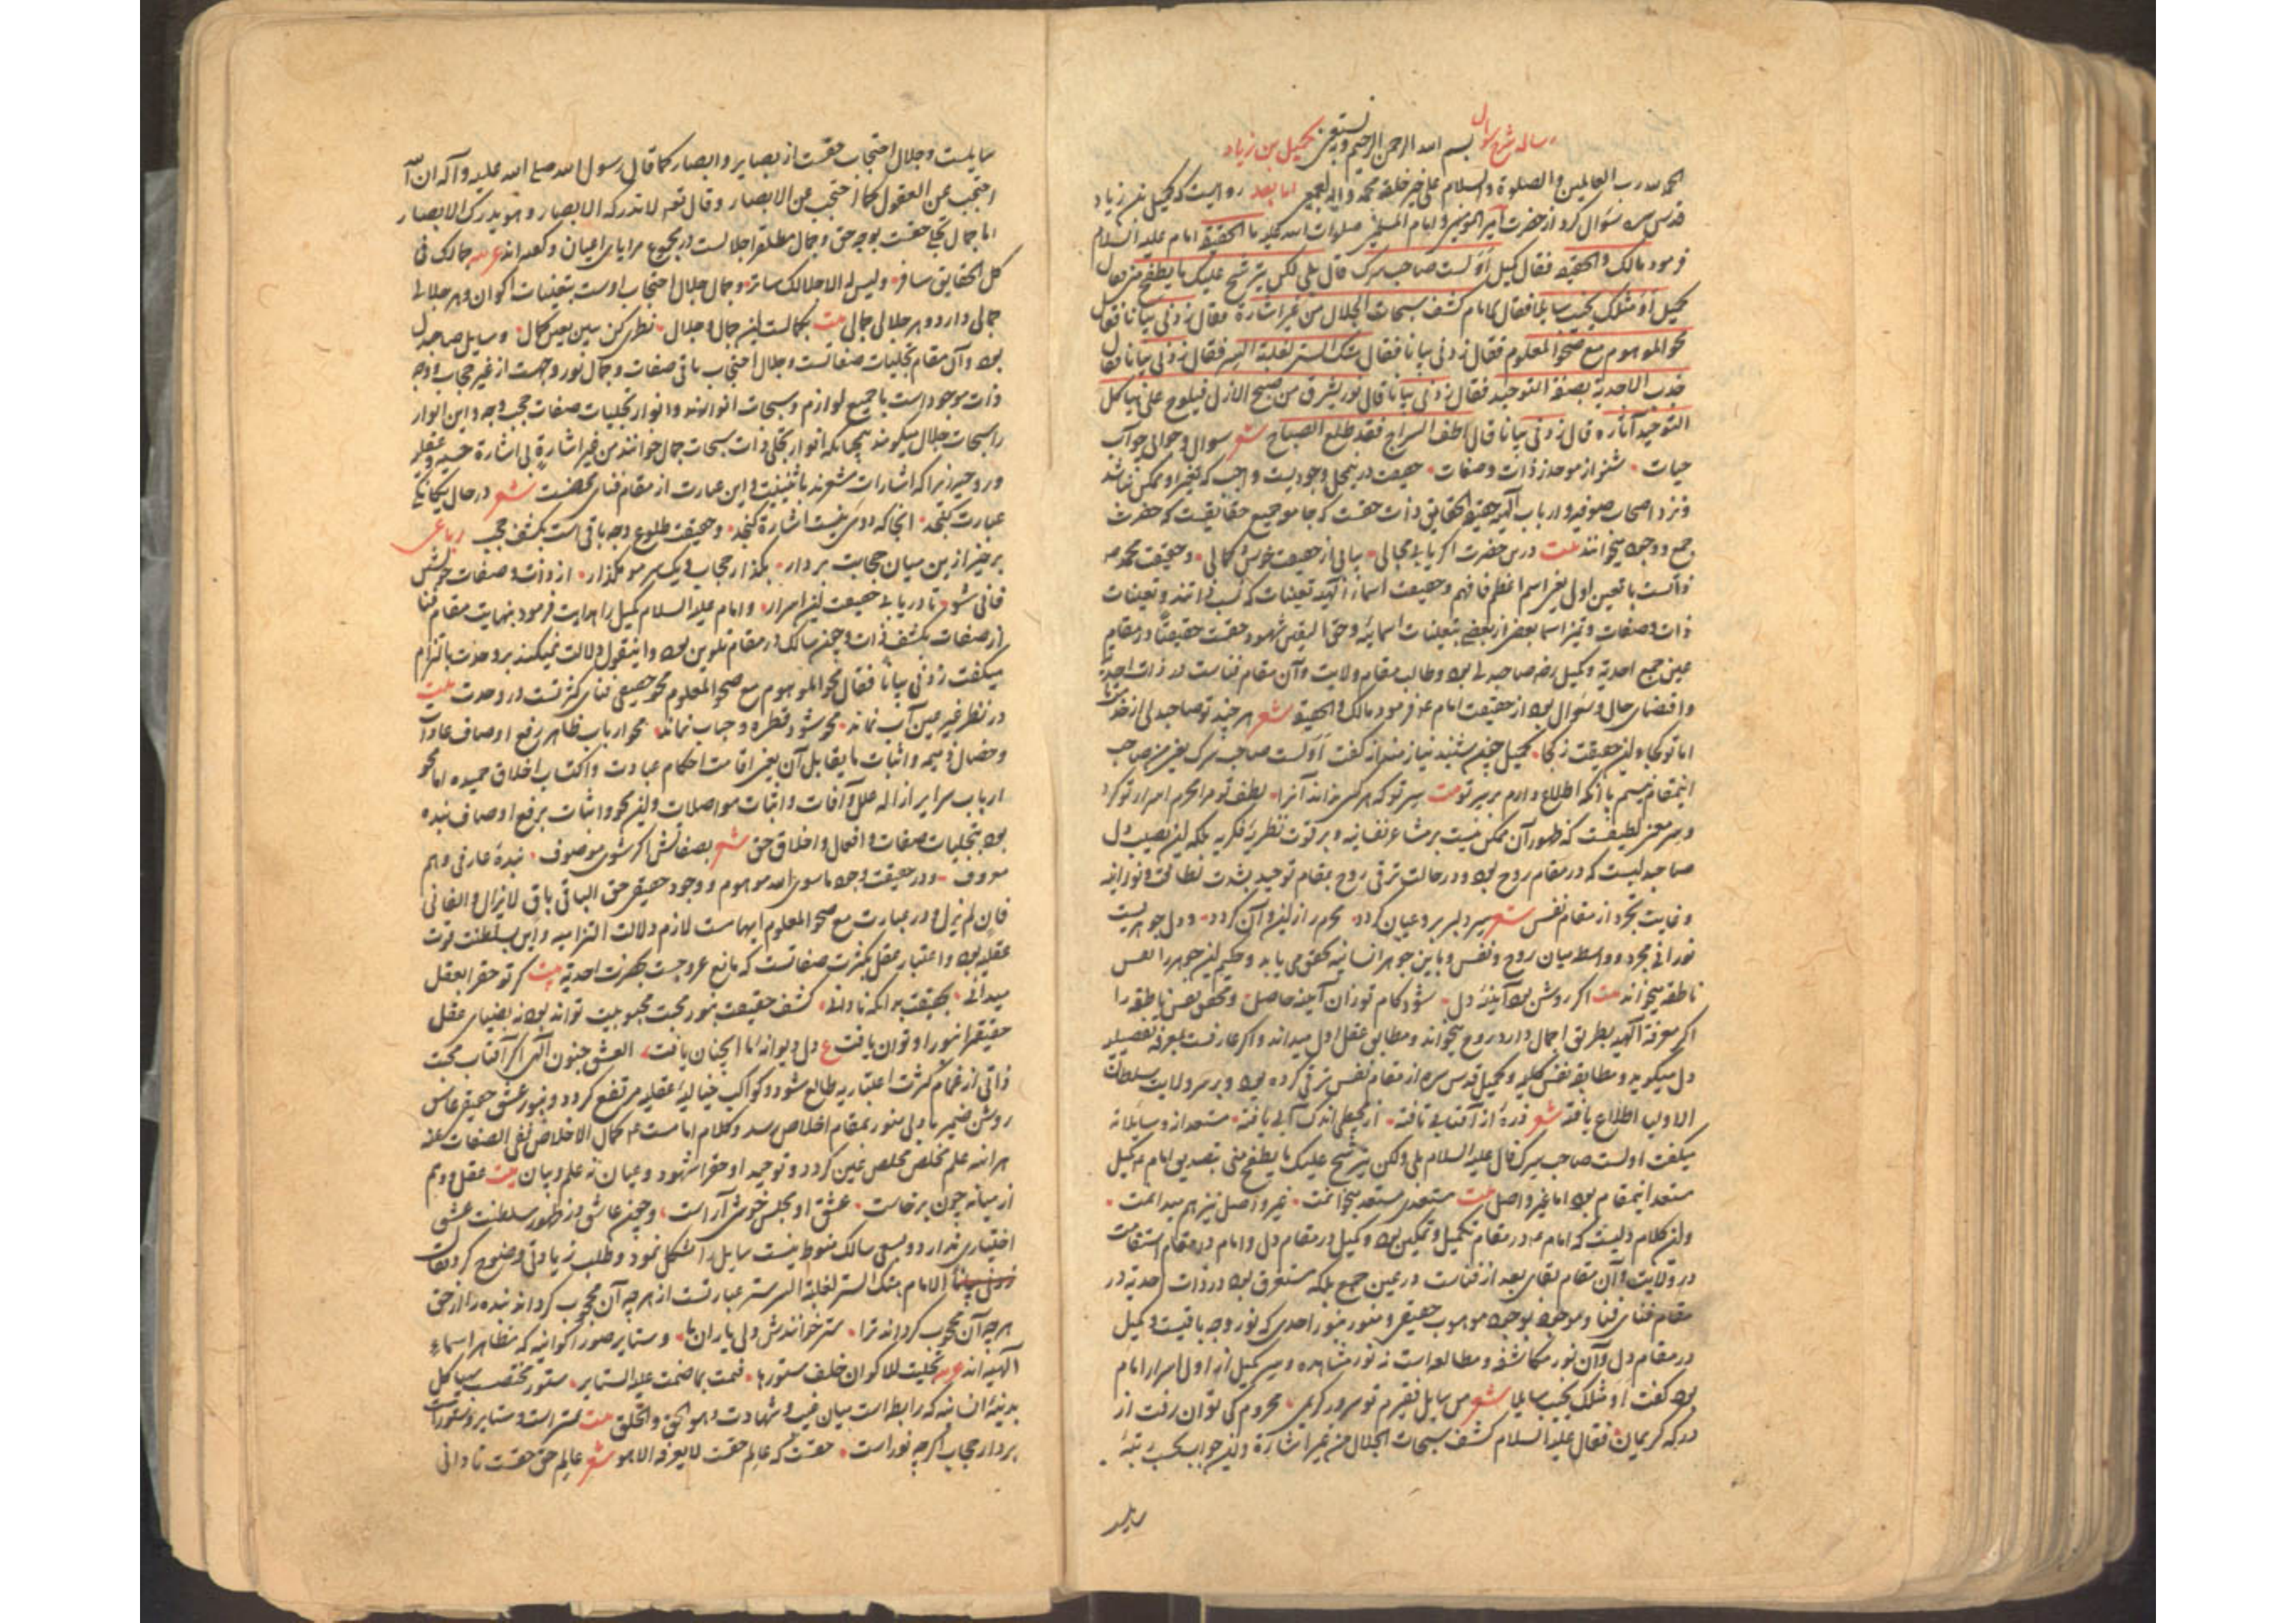 رساله شرح سوال کمیل بن زیاد
بسم الله الرحمن الرحیم وبه نستعین
الحمد لله رب العالمین والصلوة والسلام علی خیر خلقه محمد وآله اجمعین اما بعد روایست که کمیل بن زیاد
قدس سره سؤال کرد از حضرت امیر المومنین و امام المتقین صلوات الله علیه ما الحقیقة امام علیه السلام
فرمود مالک والحقیقة فقال کمیل أولست صاحب سرک قال بلی لکن یترشح علیک ما یطفح منی فقال
کمیل أو مثلک یخیب سایلا فقال الامام کشف سبحات الجلال من غیر اشارة فقال زدنی بیانا فقال
محو الموهوم مع صحو المعلوم فقال زدنی بیانا فقال هتک الستر لغلبة السر فقال زدنی بیانا فقال
جذب الاحدیة بصفة التوحید فقال زدنی بیانا قال نور یشرق من صبح الازل فیلوح علی هیاکل
التوحید آثاره قال زدنی بیانا قال اطف السراج فقد طلع الصباح شعر سوال و جوابی چو آب
حیات شنو از موحد ز ذات و صفات حقیقت در نیمحل وجودیست واجب که تغیر او ممکن نباشد
ونزد اصحاب صوفیه و ارباب آلهیه حقیقة الحقایق ذات حقست که جامع جمیع حقایقست که حضرت
جمع و وجود میخوانند بیت درین حضرت اگر یابی مجالی بیابی از حقیقت خوش کمالی و حقیقت محمدیه
ذاتست با تعین اول یعنی اسم اعظم فافهم و حقیقت اسماء آلهیه تعینات که نسب ذاتند و تعینات
ذات و صفات و تمیز اسما بعضی از بعضی بتعینات اسمائیه و حق الیقین شهود حقست حقیقتا در مقام
عین جمع احدیة و کمیل رضه صاحبدل بود و طالب مقام ولایت و آن مقام فناست در ذات احدیة
و اقتضای حال و سؤال بود از حقیقت امام ع فرمود مالک والحقیقة شعر هر چند تو صاحبدلی از خود
اما تو کجا و این حقیقت ز کجا کمیل چون شنید نیازمندانه گفت أولست صاحب سرک یعنی من صاحب
اینمقام نیم با آنکه اطلاع دارم بر سر تو بیت سر تو که هر کس نداند آنرا لطف تو مرا محرم اسرار تو کرد
و سر معنی لطیفست که ظهور آن ممکن نیست بر مشاعر نفسانیه و بر قوت نظریه فکریه بلکه این نصیب دل
صاحبدلیست که در مقام روح بود و در حالت ترقی روح بمقام توحید بشدت لطافت و نورانیه
و غایت تجرد از مقام نفس شعر سر دلبر برو عیان گردد محرم راز این و آن گردد و دل جوهریست
نورانی مجرد و واسطه میان روح و نفس و باین جوهر انسانیه تحقق می یابد و حکیم این جوهر را نفس
ناطقه میخواند بیت اگر روشن بود آیینه دل شود کام تو زان آینه حاصل و محقق نفس ناطقه را
اگر معرفة آلهیه بطریق اجمال دارد روح میخواند و مطابق عقل اول میداند و اگر عارفست بمعرفة تفصیلیه
دل میگوید و مطابقه نفس کلیه و کمیل قدس سره از مقام نفس ترقی کرده بود و بر سر ولایت سلطان
الاولیا اطلاع یافته شعر ذره از آفتابی تافته از محیطی اندک آبی یافته مستعدانه و سایلانه
میگفت اولست صاحب سرک قال علیه السلام بلی ولکن یترشح علیک ما یطفح منی بتصدیق امام ع کمیل
مستعد اینمقام بود اما غیر واصل بیت مستعدی مستعد میخوانمت غیر واصل نیز هم میدانمت
واین کلام دلیست که امام ع در مقام تکمیل و تمکین بود و کمیل در مقام دل و امام در مقام استقامت
در ولایت و آن مقام بقای بعد از فناست در عین جمع بلکه مستغرق بود در ذات احدیة در
مقام فنای فنا و موجود بوجود موهوب حقیقی و منور بنور احدی که نور وجه باقیست و کمیل
در مقام دل و آن نور مکاشفه و مطالعه است نه نور مشاهده و سر کمیل از اولی اسرار امام
بود گفت أو مثلک یخیب سایلا شعر من سایل فقیرم تو سرور کریمی محروم کی توان رفت از
درگه کریمان فقال علیه السلام کشف سبحات الجلال من غیر اشارة واین جواب بحسب تنبه
سایلست
سایلست و جلال احتجاب حقست از بصایر و ابصار کما قال رسول الله صلی الله علیه وآله ان الله
احتجب عن العقول کما احتجب عن الابصار وقال تع لا تدرکه الابصار وهو یدرک الابصار
اما جمال تجلی حقست بوجه حق و جمال مطلق اجلالست در مجموع مرایای اعیان و گفته اند عربیه جمالک فی
کل الحقایق سافر ولیس له الا جلالک ساتر و جمال جلال احتجاب اوست بتعینات اکوان و هر جلالی
جمالی دارد و هر جلالی جمالی بیت بکمالست این جمال و جلال نظری کن ببین بعین کمال و سایل صاحبدل
بود و آن مقام تجلیات صفاتست و جلال احتجاب باقی صفات و جمال نور وجهست از غیر حجاب و وجه
ذات موجود است با جمیع لوازم و سبحات انوارند و انوار تجلیات صفات حجب وجه و این انوار
را سبحات جلال میگویند همچنانکه انوار تجلی ذات سبحات جمال خوانند من غیر اشارة بی اشارة حسیه و عقلیه
و روحیه زیرا که اشارات مشعرند باثنینیت و این عبارت از مقام فنای محضست شعر در حال یگانگی
عبارت کنجد آنجا که دوئی نیست اشارة کنجد و حقیقت طلوع وجه باقی است بکشف حجب رباعی
برخیز ازین میان حجابت بردار بگذار حجاب و یک سر مو مگذار از ذات و صفات خویش
فانی شو تا دریابی حقیقت این اسرار و امام علیه السلام کمیل را هدایت فرمود بنهایت مقام فنا
از صفات بکشف ذات و چون سالک در مقام تلوین بود و اینقول دلالت نمیکند بر وحدت بالتزام
میگفت زدنی بیانا فقال محو الموهوم مع صحو المعلوم محو حقیقی فنای کثرتست در وحدت بیت
در نظر غیر عین آب نماند محو شود قطره و حباب نماند محو ارباب ظاهر رفع اوصاف عادات
و خصال ذمیمه و اثبات ما یقابل آن یعنی اقامت احکام عبادت و اکتساب اخلاق حمیده اما محو
ارباب سرایر ازاله علل و آفات و اثبات مواصلات و این محو و اثبات برفع اوصاف بنده
بود بتجلیات صفات و افعال و اخلاق حق شعر بصفاتش اگر شوی موصوف بنده عارفی و هم
معروف و در حقیقت وجود ما سوی الله موهوم و وجود حقیقی حق الباقی باق لایزال والفانی
فان لم یزل و در عبارت مع صحو المعلوم ابهامست لازم دلالت التزامیه و این سلطنت قوت
عقلیه بود و اعتبار عقل بکثرت صفاتست که مانع عروجست بحضرت احدیة بیت گر تو حق را بعقل
میدانی بحقیقت بدانکه نادانی کشف حقیقت بنور محبت محبوبیت تواند بود نه بضیای عقل
حقیقتا بنور او توان یافت ع دل دیوانه اما آنچنان یافت العشق جنون آلهی اگر آفتاب محبت
ذاتی از غمام کثرت اعتباریه طالع شود و کواکب خیالیه عقلیه مرتفع گردد و بنور عشق حقیقی عاشق
روشن ضمیر با دلی منور بمقام اخلاص رسد و کلام امامست ع کمال الاخلاص نفی الصفات عنه
هر آینه علم مخلص مخلص عین گردد و توحید او حق را شهود و عیان نه علم و بیان بیت عقل و وهم
از میانه چون برخاست عشق او مجلس خوشی آراست و چون عاشق در ظهور سلطنت عشق
اختیاری ندارد و بسعی سالک منوط نیست سایل را مشکل نمود و طلب زیادتی وضوح کرد فقال
زدنی بیانا الامام هتک الستر لغلبة السر ستر عبارتست از هر چه آن محجوب گرداند بنده را از حق
هر چه آن محجوب گرداند ترا ستر خوانندش ولی یاران ما و ستایر صور اکوانیه که مظاهر اسماء
آلهیه اند عربیه تجلیت للاکوان خلف ستورها فنمت بما ضمت علیه الستایر ستور مختصب بهیاکل
بدنیه انسانیه که رابطه است میان غیب و شهادت و هو الحق والخلق بیت ستر است و ستایر و ستورات
بردار حجاب اگر چه نور است حقست که عالم حقست لا یعرفه الا هو شعر عالم حق حقست تا دانی